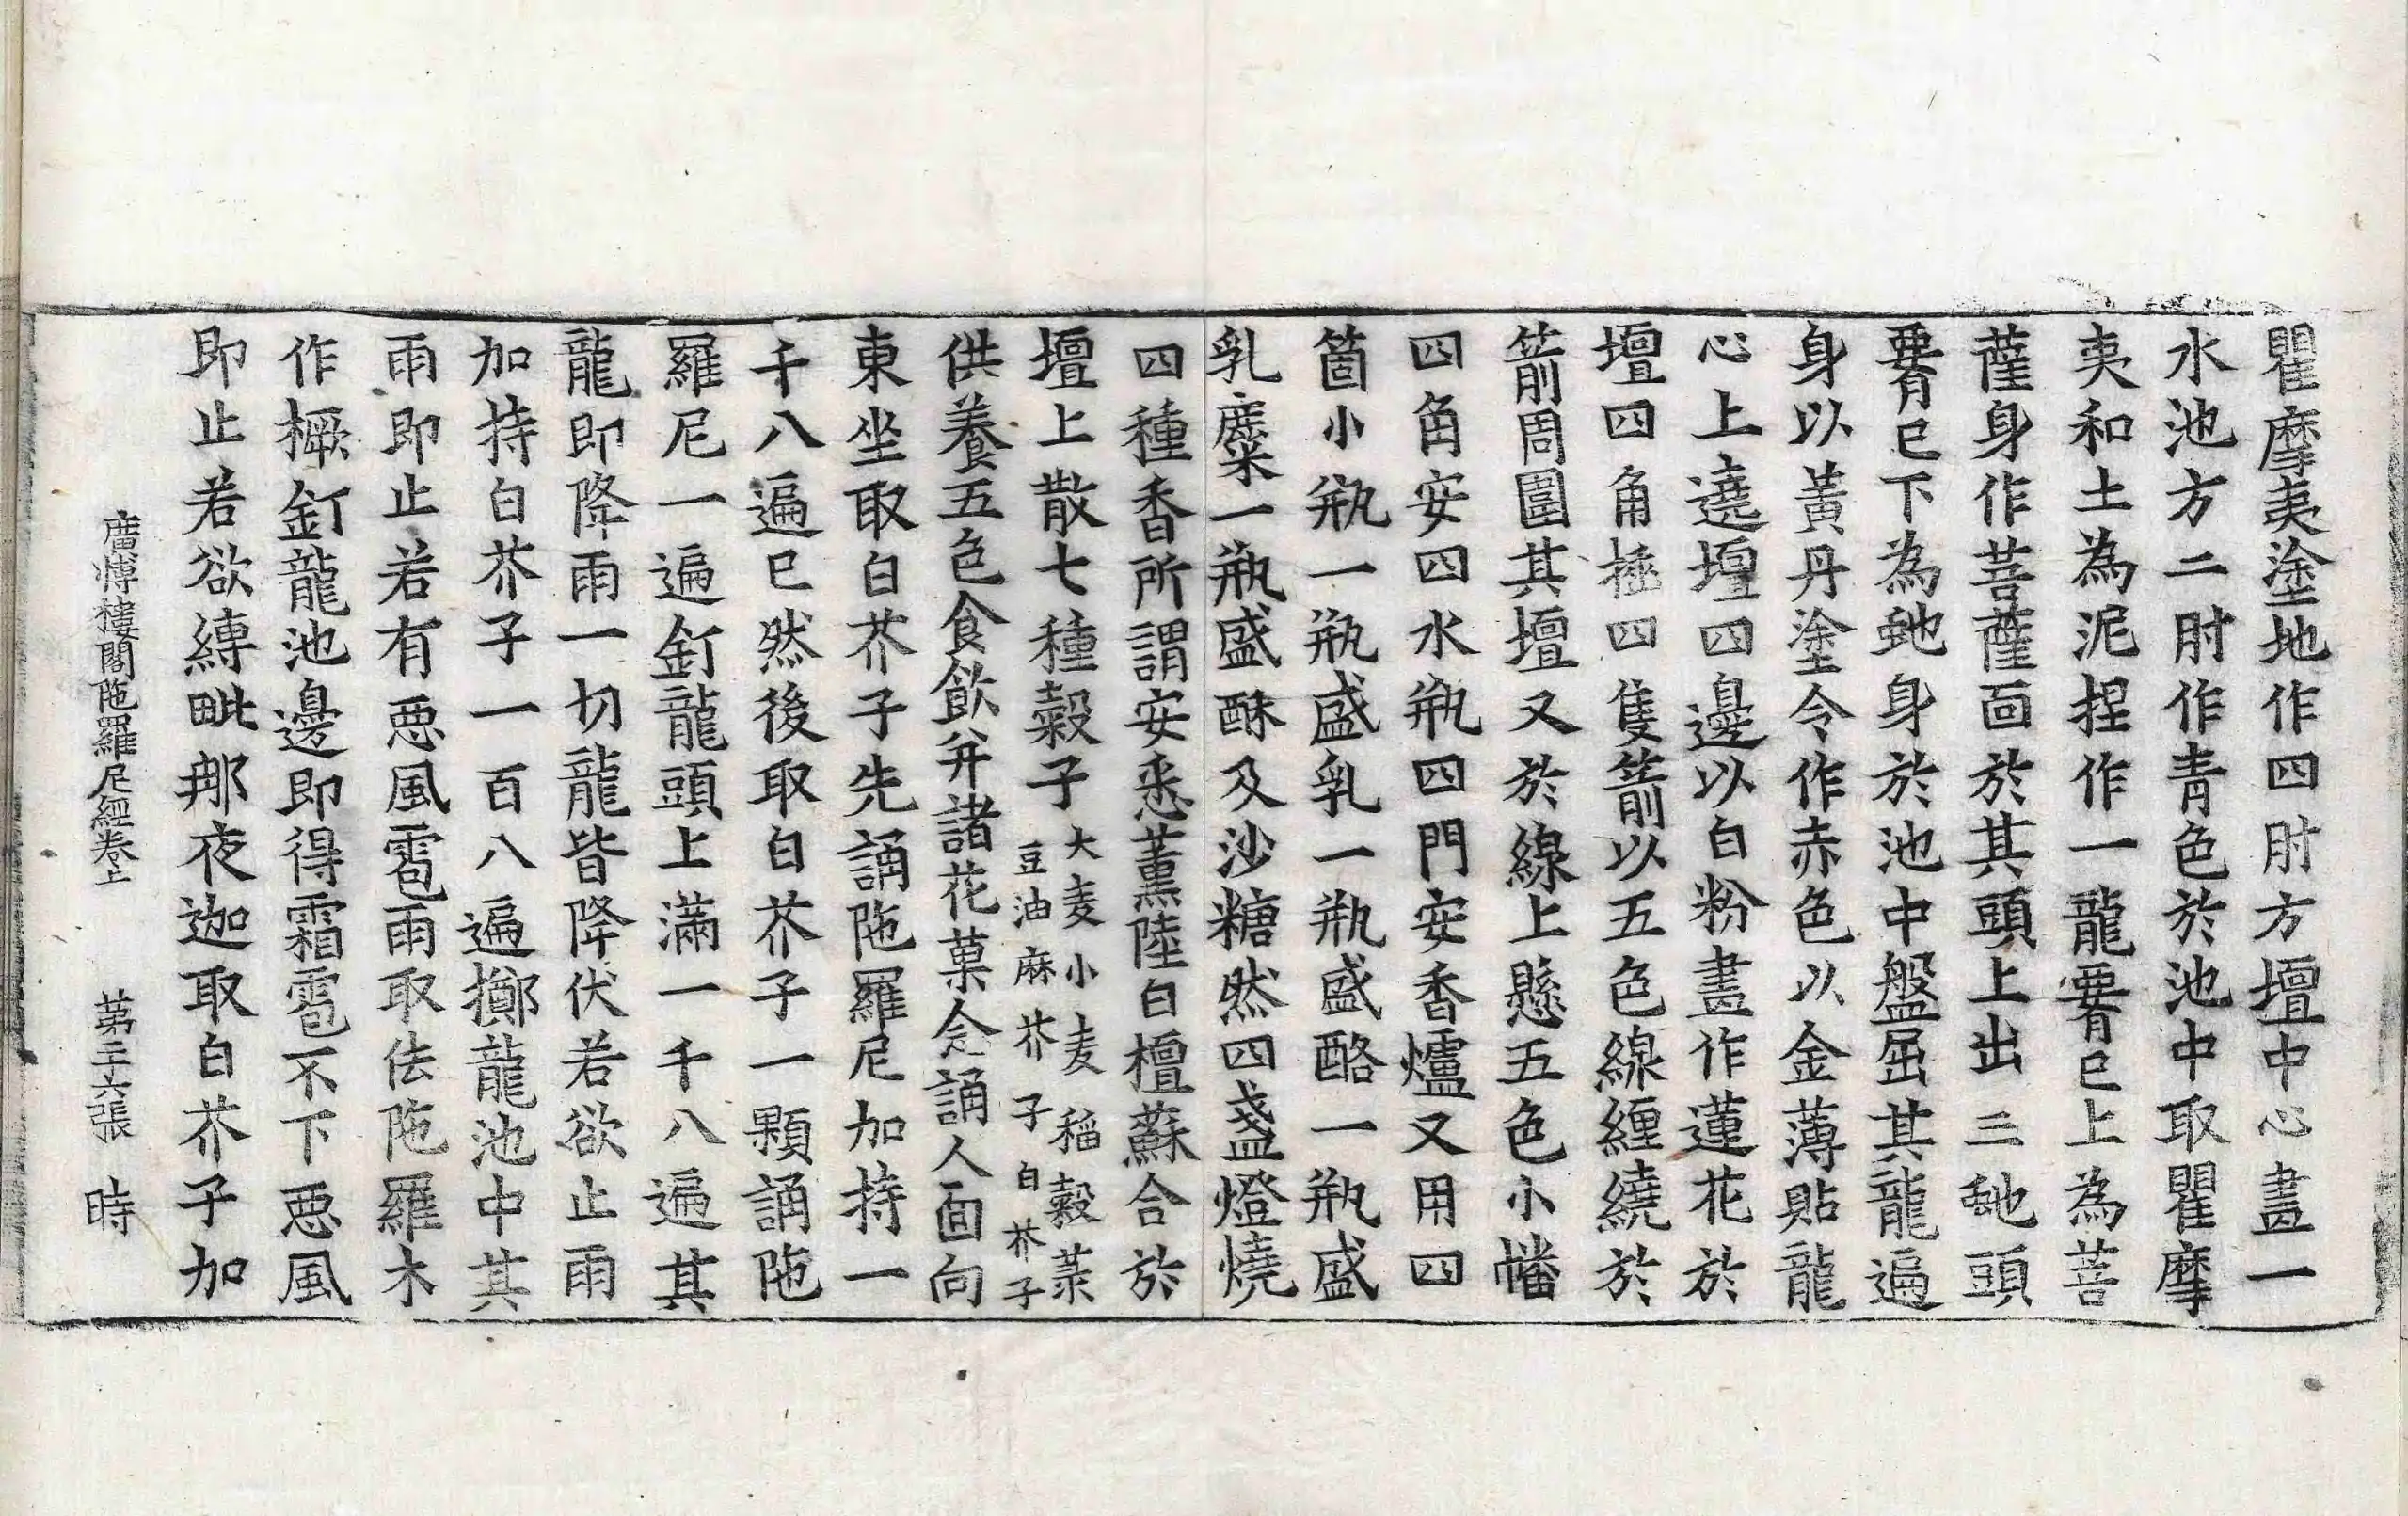 瞿摩夷塗地作四肘方壇中心畫一
水池方二肘作青色於池中取瞿摩
夷和土為泥捏作一龍𦝫已上為菩
薩身作菩薩面於其頭上出三虵頭
𦝫已下為虵身於池中盤屈其龍遍
身以黃丹塗令作赤色以金薄貼龍
心上遶壇四邊以白粉畫作蓮花於
壇四角插四隻箭以五色線纏繞於
箭周圍其壇又於線上懸五色小幡
四角安四水瓶四門安香爐又用四
箇小瓶一瓶盛乳一瓶盛酪一瓶盛
乳糜一瓶盛酥及沙糖然四盞燈燒
四種香所謂安悉薰陸白檀蘇合於
壇上散七種穀子大麦小麦稻穀菉
豆油麻芥子白芥子
供養五色食飲并諸花菓念誦人面向
東坐取白芥子先誦陁羅尼加持一
千八遍已然後取白芥子一顆誦陁
羅尼一遍釘龍頭上滿一千八遍其
龍即降雨一切龍皆降伏若欲止雨
加持白芥子一百八遍擲龍池中其
雨即止若有惡風雹雨取佉陁羅木
作橛釘龍池邊即得霜雹不下惡風
即止若欲縛毗那夜迦取白芥子加
廣愽樓閣陁羅尼經卷上　第二十六張　時